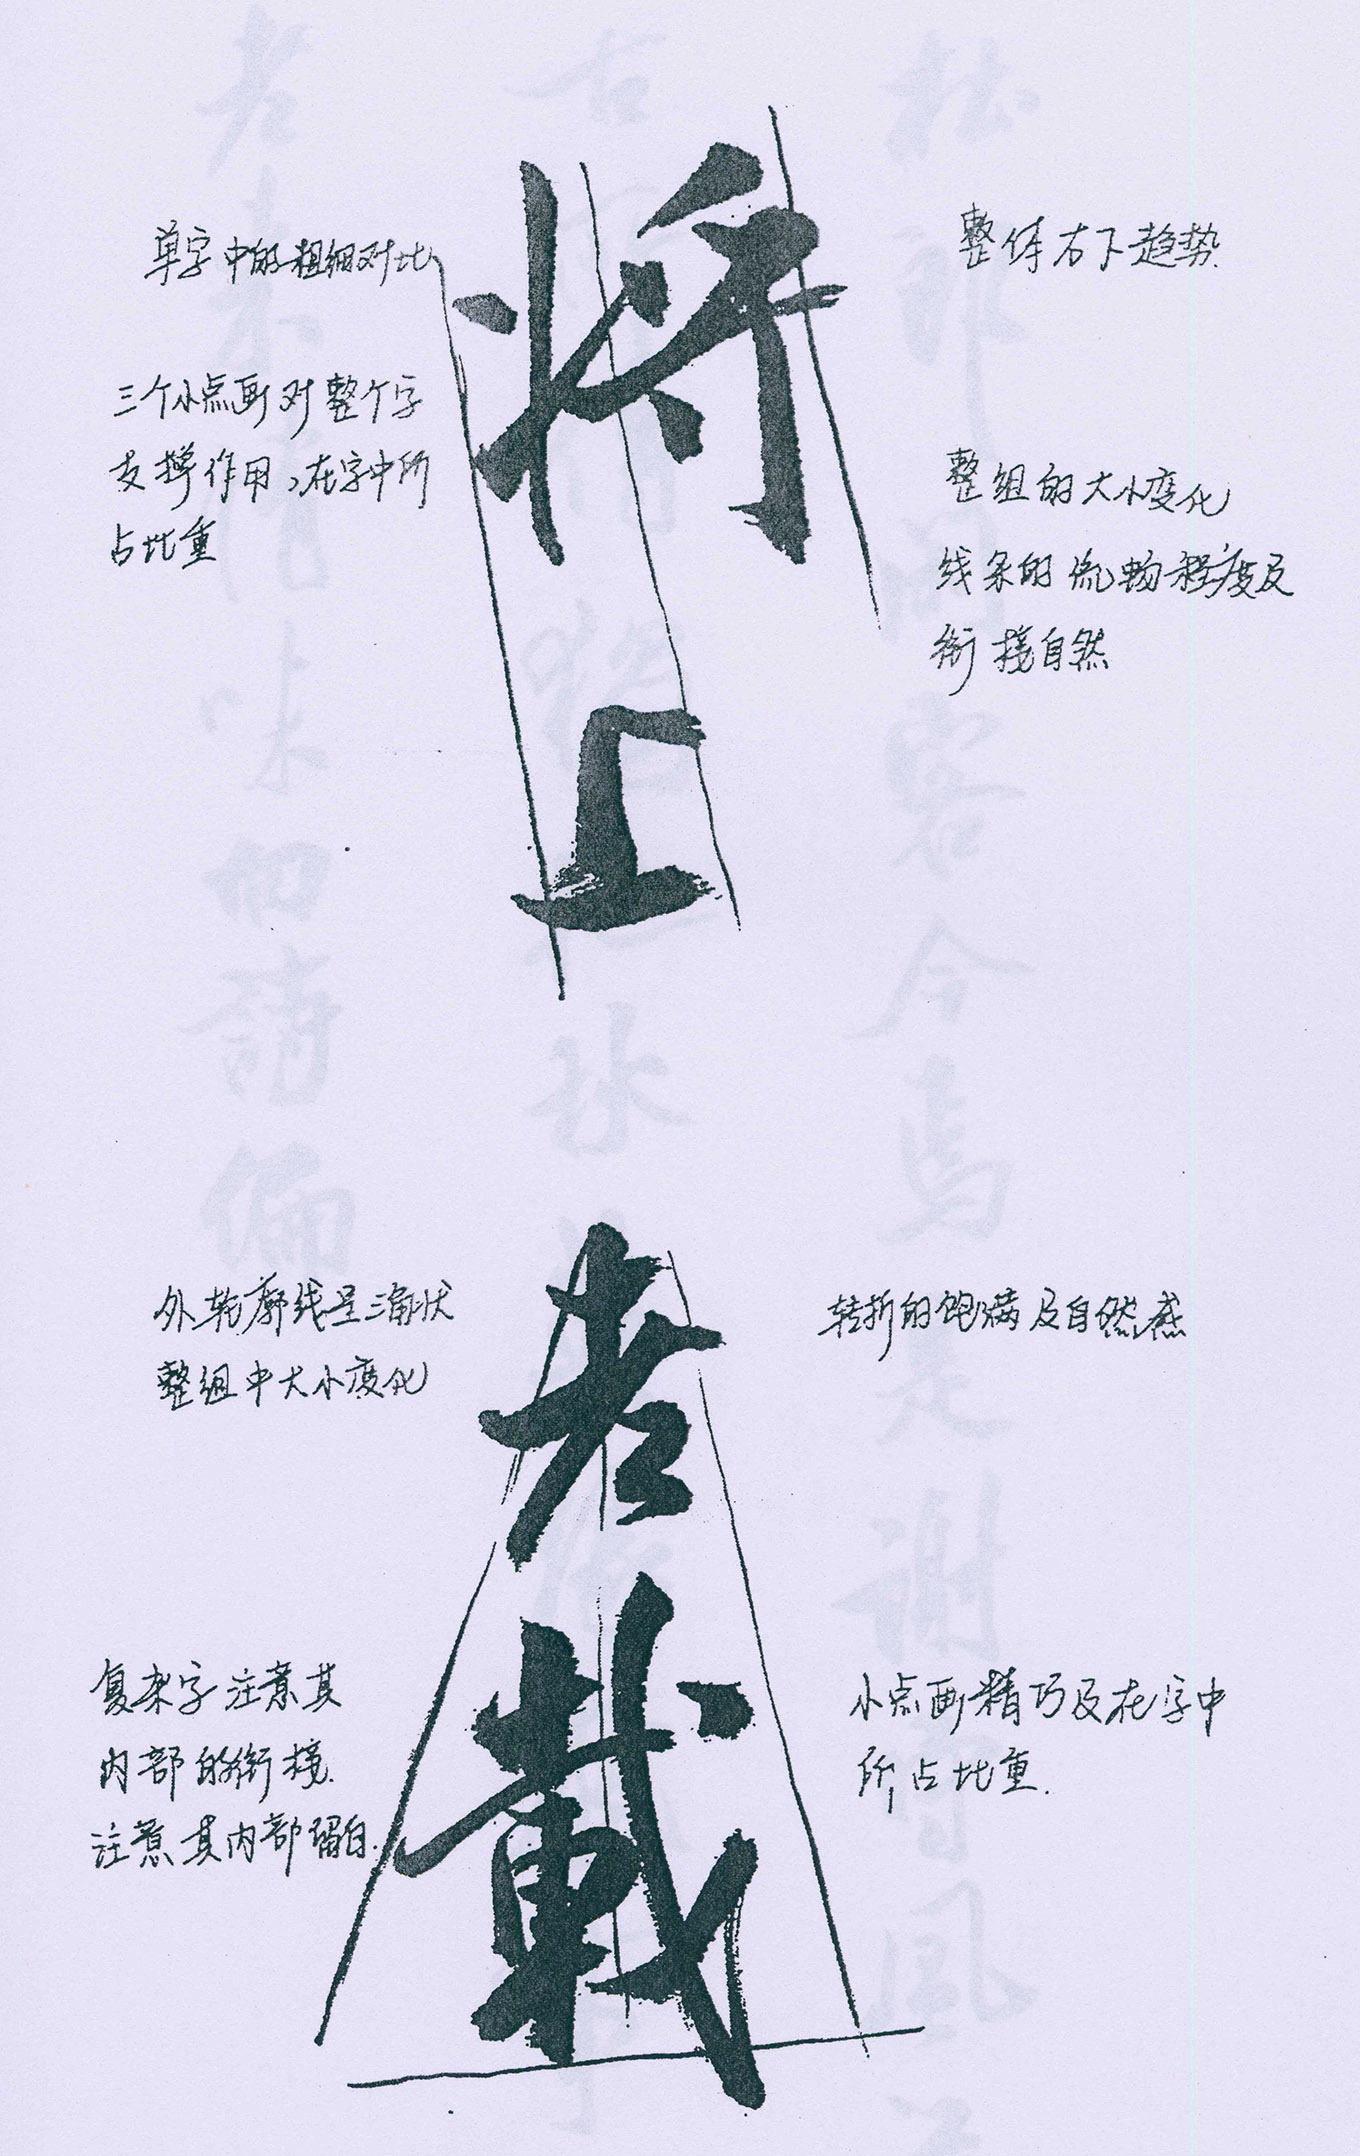 单字中的粗细对比
三个小点画对整个字
支撑作用,在字中所
占比重
将
工
整体右下趋势
整组的大小变化
线条的流畅程度及
衔接自然
外轮廓线呈三角状
整组中大小变化
老
载
转折的饱满及自然感
复杂字注意其
内部的衔接.
注意其内部留白.
小点画精巧及在字中
所占比重.